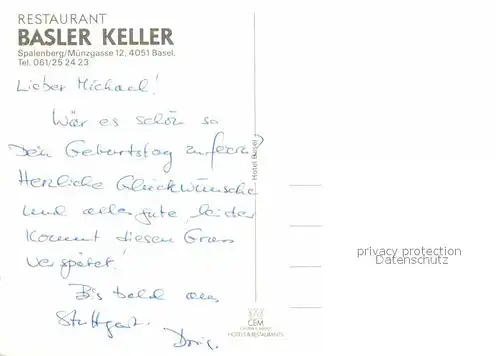 RESTAURANT
BASLER KELLER
Spalenberg/Münzgasse 12, 4051 Basel.
Tel. 061/25 24 23
Lieber Michael!
Wär es schön so
Dein Geburtstag zu feiern?
Herzliche Glückwünsche
und alles gute, leider
kommt diesen Gruss
verspätet!
Bis bald aus
Stuttgart.
Doris.
Hotel Basel
CEM
HOTELS & RESTAURANTS
privacy protection
Datenschutz